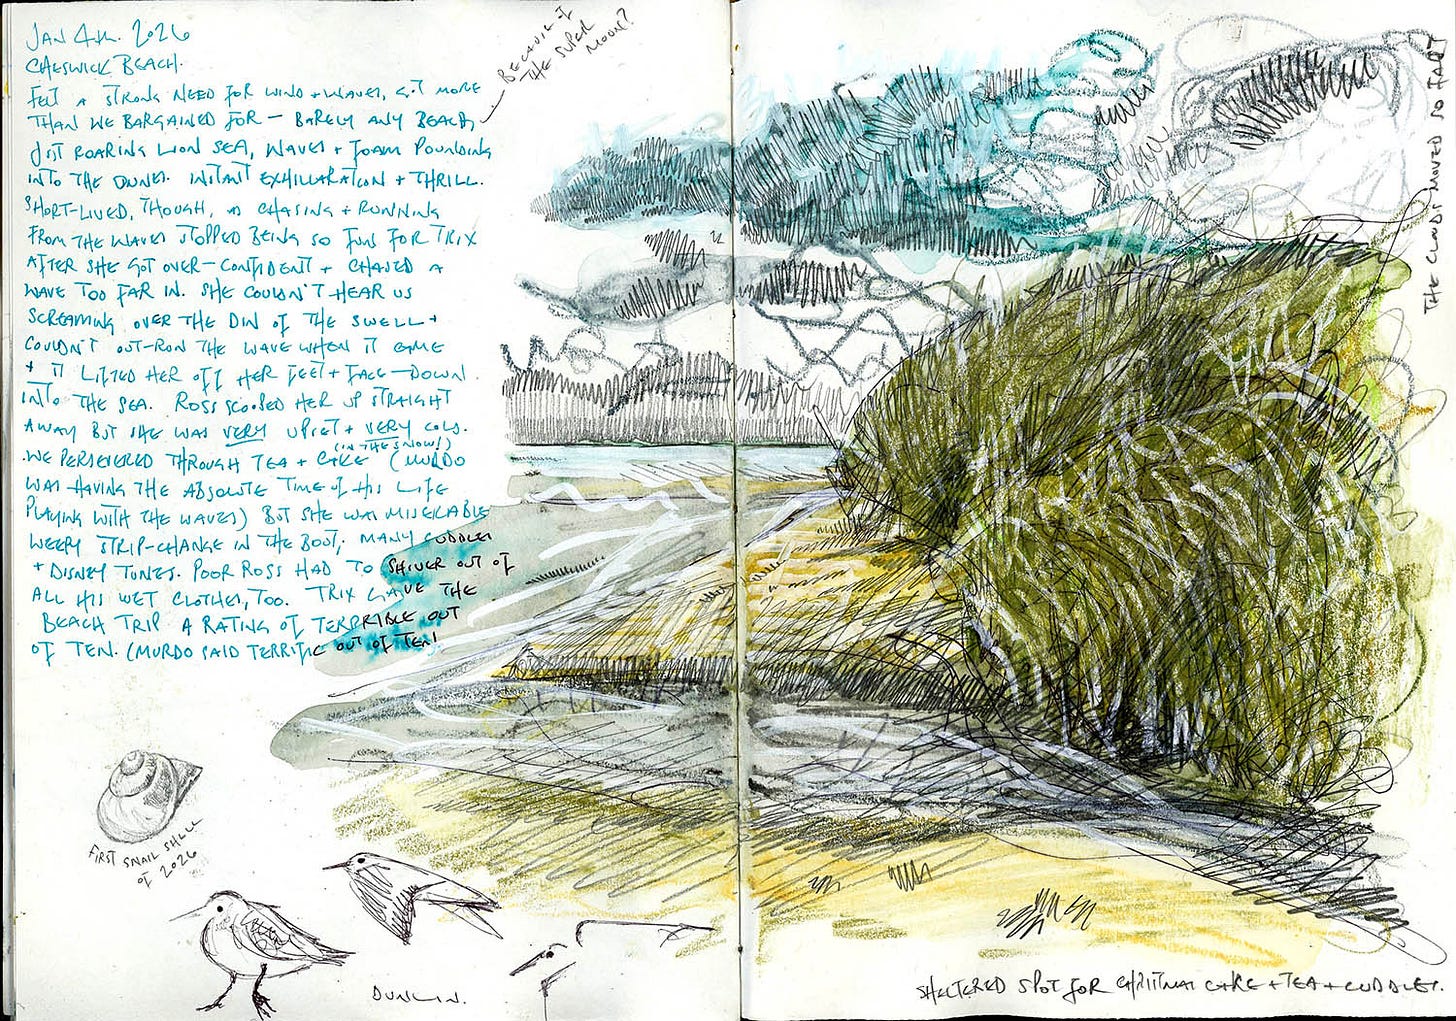 JAN 4th. 2026
CHESWICK BEACH.
FELT A STRONG NEED FOR WIND + WAVES, GOT MORE
THAN WE BARGAINED FOR — BARELY ANY BEACH,
JUST ROARING LION SEA, WAVES + FOAM POUNDING
INTO THE DUNES. INSTANT EXHILLARATION + THRILL.
SHORT-LIVED, THOUGH, AS CHASING + RUNNING
FROM THE WAVES STOPPED BEING SO FUN FOR TRIX
AFTER SHE GOT OVER-CONFIDENT + CHASED A
WAVE TOO FAR IN. SHE COULDN'T HEAR US
SCREAMING OVER THE DIN OF THE SWELL +
COULDN'T OUT-RUN THE WAVE WHEN IT CAME
+ IT LIFTED HER OFF HER FEET + FACE-DOWN
INTO THE SEA. ROSS SCOOPED HER UP STRAIGHT
AWAY BUT SHE WAS VERY UPSET + VERY COLD.
(IN THE SNOW!)
WE PERSEVERED THROUGH TEA + CAKE (MURDO
WAS HAVING THE ABSOLUTE TIME OF HIS LIFE
PLAYING WITH THE WAVES) BUT SHE WAS MISERABLE
WEEPY STRIP-CHANGE IN THE BOOT, MANY CUDDLES
+ DISNEY TUNES. POOR ROSS HAD TO SHIVER OUT OF
ALL HIS WET CLOTHES, TOO. TRIX GAVE THE
BEACH TRIP A RATING OF TERRRIBLE OUT
OF TEN. (MURDO SAID TERRIFIC OUT OF TEN!
BECAUSE OF
THE SUPER
MOON?
THE CLOUDS MOVED SO FAST
FIRST SNAIL SHELL
OF 2026
DUNLIN.
SHELTERED SPOT FOR CHRISTMAS CAKE + TEA + CUDDLES.